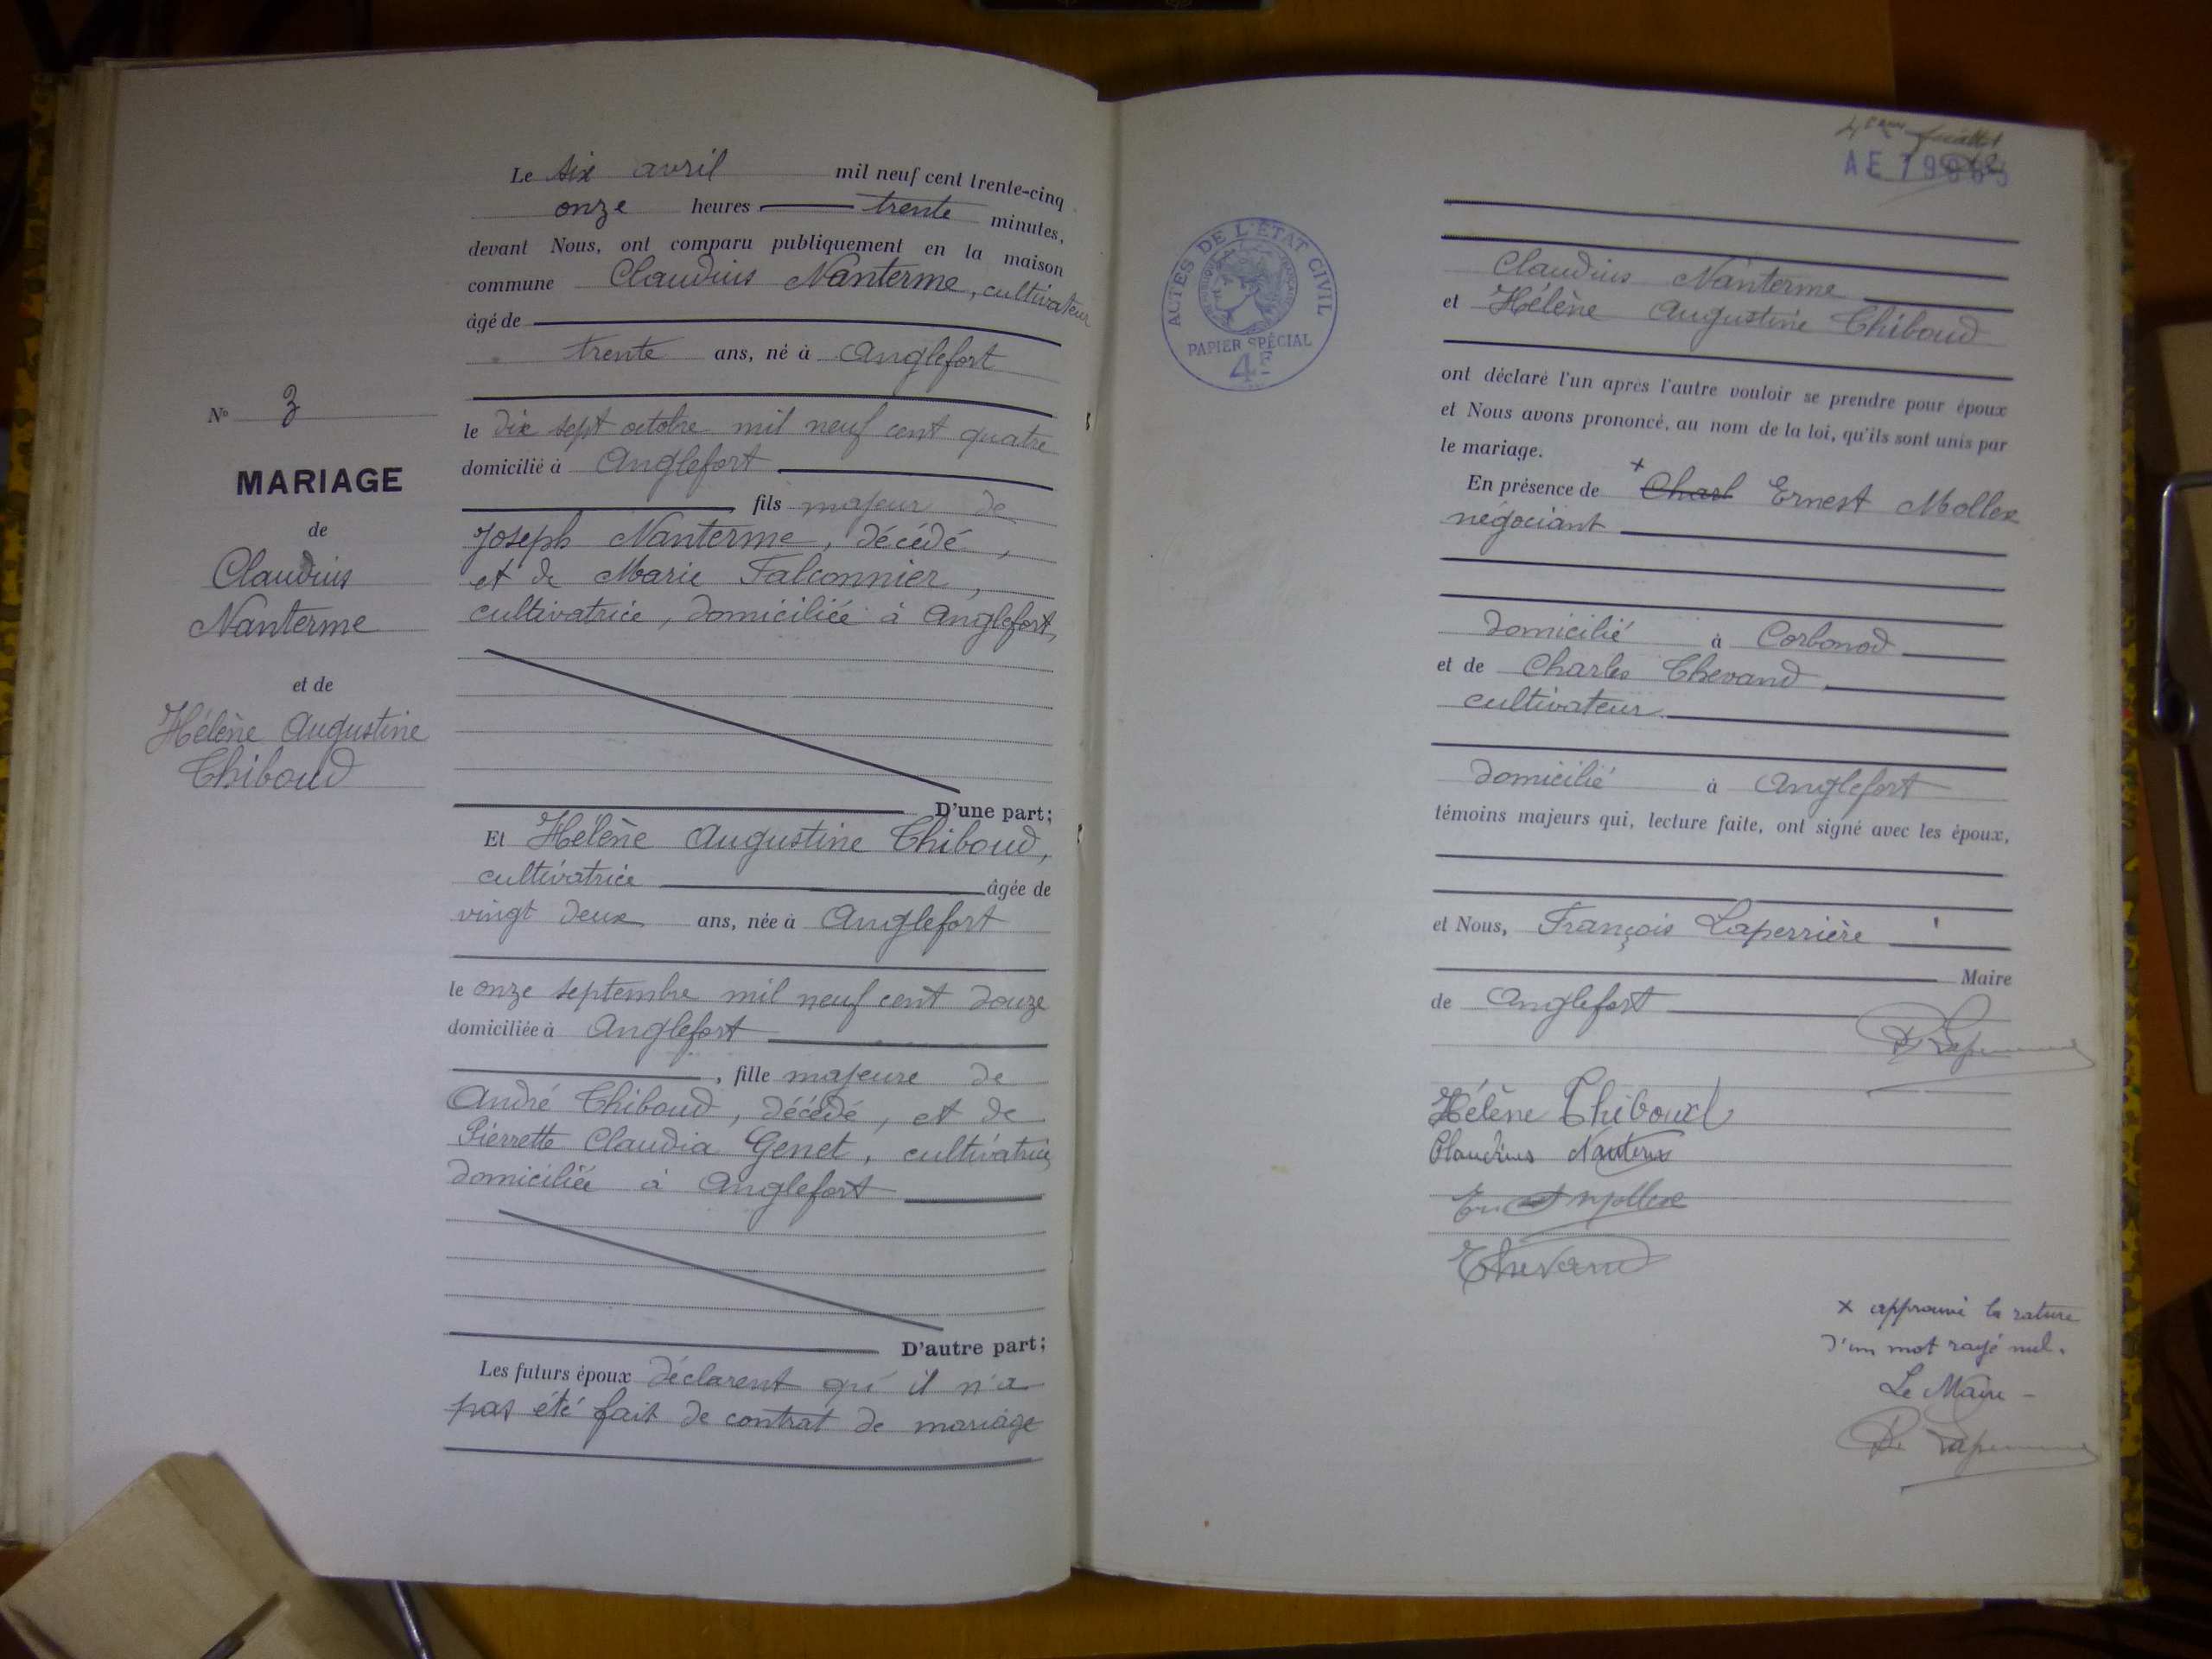 Le six avril mil neuf cent trente-cinq
onze heures trente minutes,
devant Nous, ont comparu publiquement en la maison
commune Claudius Nanterme, cultivateur
âgé de
trente ans, né à Anglefort
le dix sept octobre mil neuf cent quatre
domicilié à Anglefort
, fils majeur de
Joseph Nanterme, décédé,
et de Marie Falconnier,
cultivatrice, domiciliée à Anglefort,
D'une part;
Et Hélène Augustine Thiboud,
cultivatrice âgée de
vingt deux ans, née à Anglefort
le onze septembre mil neuf cent douze
domiciliée à Anglefort
, fille majeure de
André Thiboud, décédé, et de
Pierrette Claudia Genet, cultivatrice
domiciliée à Anglefort
D'autre part;
Les futurs époux déclarent qu'il n'a
pas été fait de contrat de mariage
N° 3
MARIAGE
de
Claudius
Nanterme
et de
Hélène Augustine
Thiboud
ACTES DE L'ÉTAT CIVIL
PAPIER SPÉCIAL
4F
Claudius Nanterme
et Hélène Augustine Thiboud
ont déclaré l'un après l'autre vouloir se prendre pour époux
et Nous avons prononcé, au nom de la loi, qu'ils sont unis par
le mariage.
En présence de x Charl Ernest Mollex
négociant
domicilié à Corbonod
et de Charles Thevand
cultivateur
domicilié à Anglefort
témoins majeurs qui, lecture faite, ont signé avec les époux,
et Nous, François Laperrière
Maire
de Anglefort
Hélène Thiboud
Claudius Nanterme
Ernest Mollex
Thevand
x approuvé la rature
d'un mot rayé nul.
Le Maire